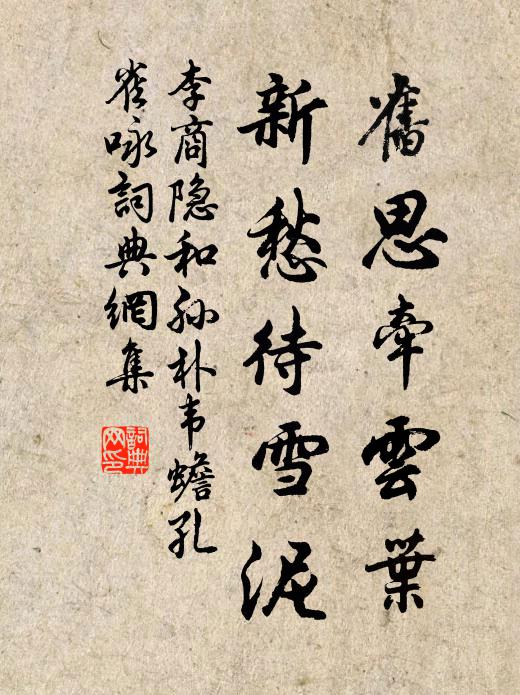 舊思牽雲葉
新愁待雪泥
李商隐和孙朴韦蟾孔
雀咏詞典網集
詞典
网印